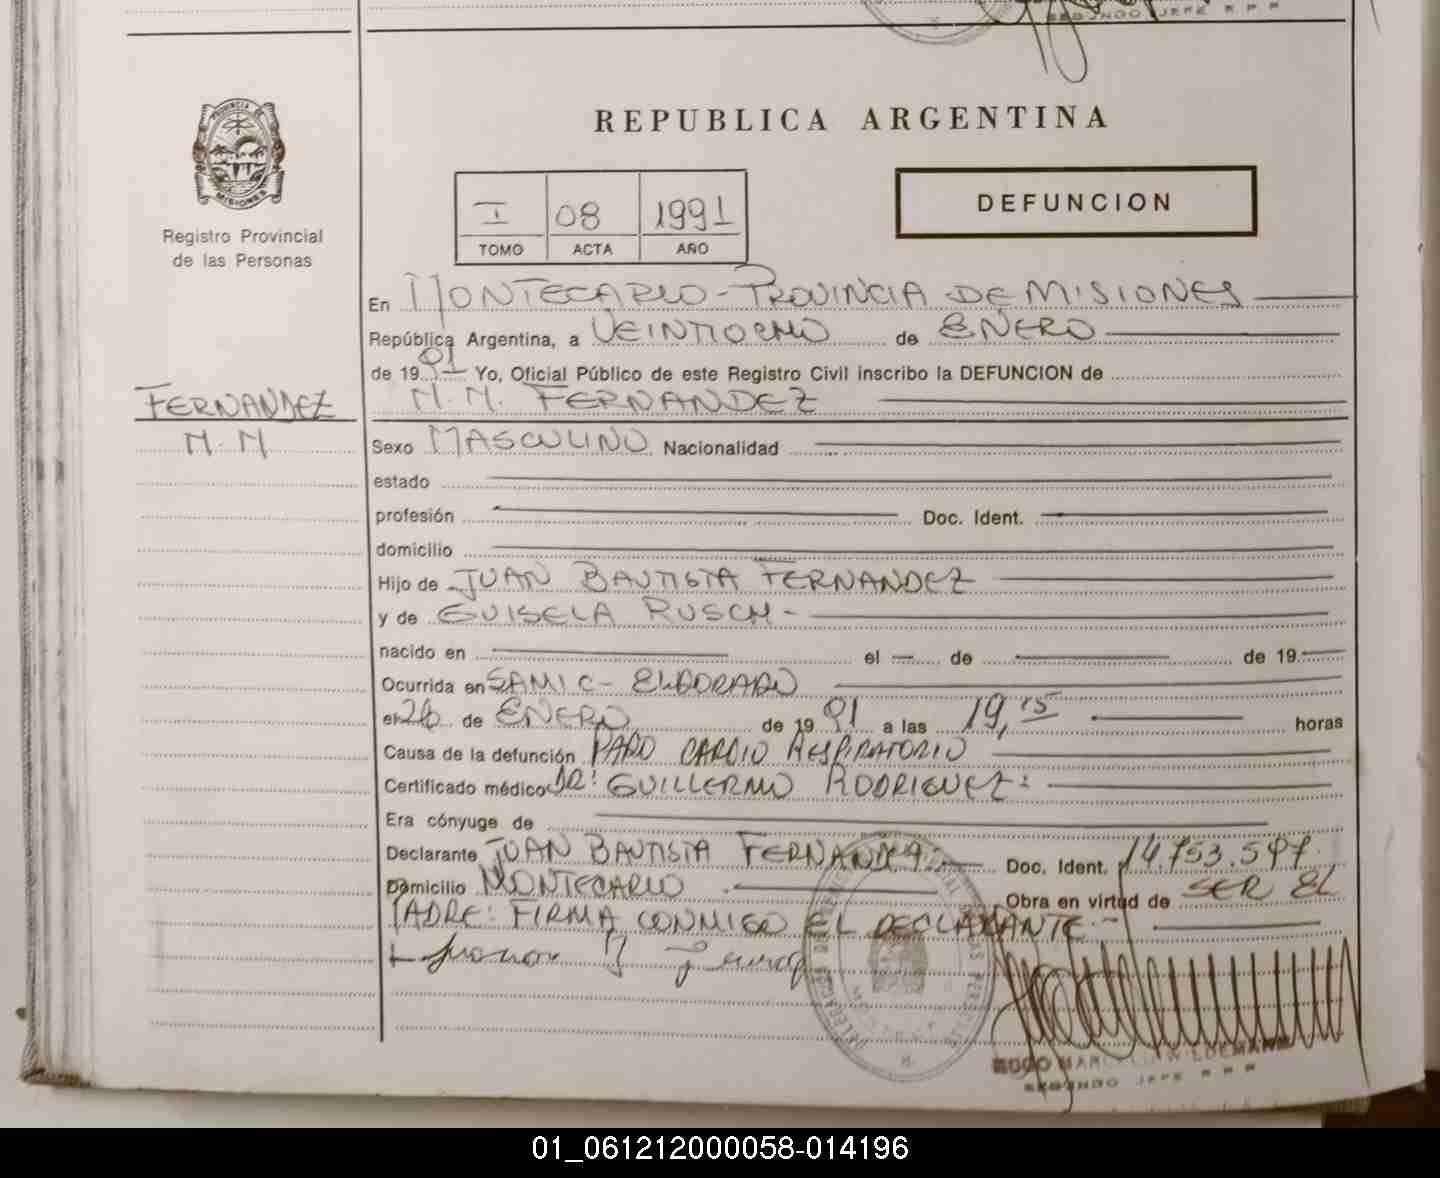 SEGUNDO JEFE R.P.P.
PROVINCIA DE
MISIONES
Registro Provincial
de las Personas
REPUBLICA ARGENTINA
I 08 1991
TOMO ACTA AÑO
DEFUNCION
En MONTECARLO - PROVINCIA DE MISIONES
República Argentina, a VEINTIOCHO de ENERO
de 1991 Yo, Oficial Público de este Registro Civil inscribo la DEFUNCION de
FERNANDEZ
N.N. FERNANDEZ
N.N
Sexo MASCULINO Nacionalidad
estado
profesión Doc. Ident.
domicilio
Hijo de JUAN BAUTISTA FERNANDEZ
y de GUISELA RUSCH -
nacido en el de de 19
Ocurrida en SAMIC - ELDORADO
el 26 de ENERO de 1991 a las 19,15 horas
Causa de la defunción PARO CARDIO RESPIRATORIO
Certificado médico DR: GUILLERMO RODRIGUEZ:
Era cónyuge de
Declarante JUAN BAUTISTA FERNANDEZ Doc. Ident. 14.753.597.
Domicilio MONTECARLO Obra en virtud de SER EL
PADRE: FIRMA CONMIGO EL DECLARANTE -
SEGUNDO JEFE R.P.P.
01_061212000058-014196